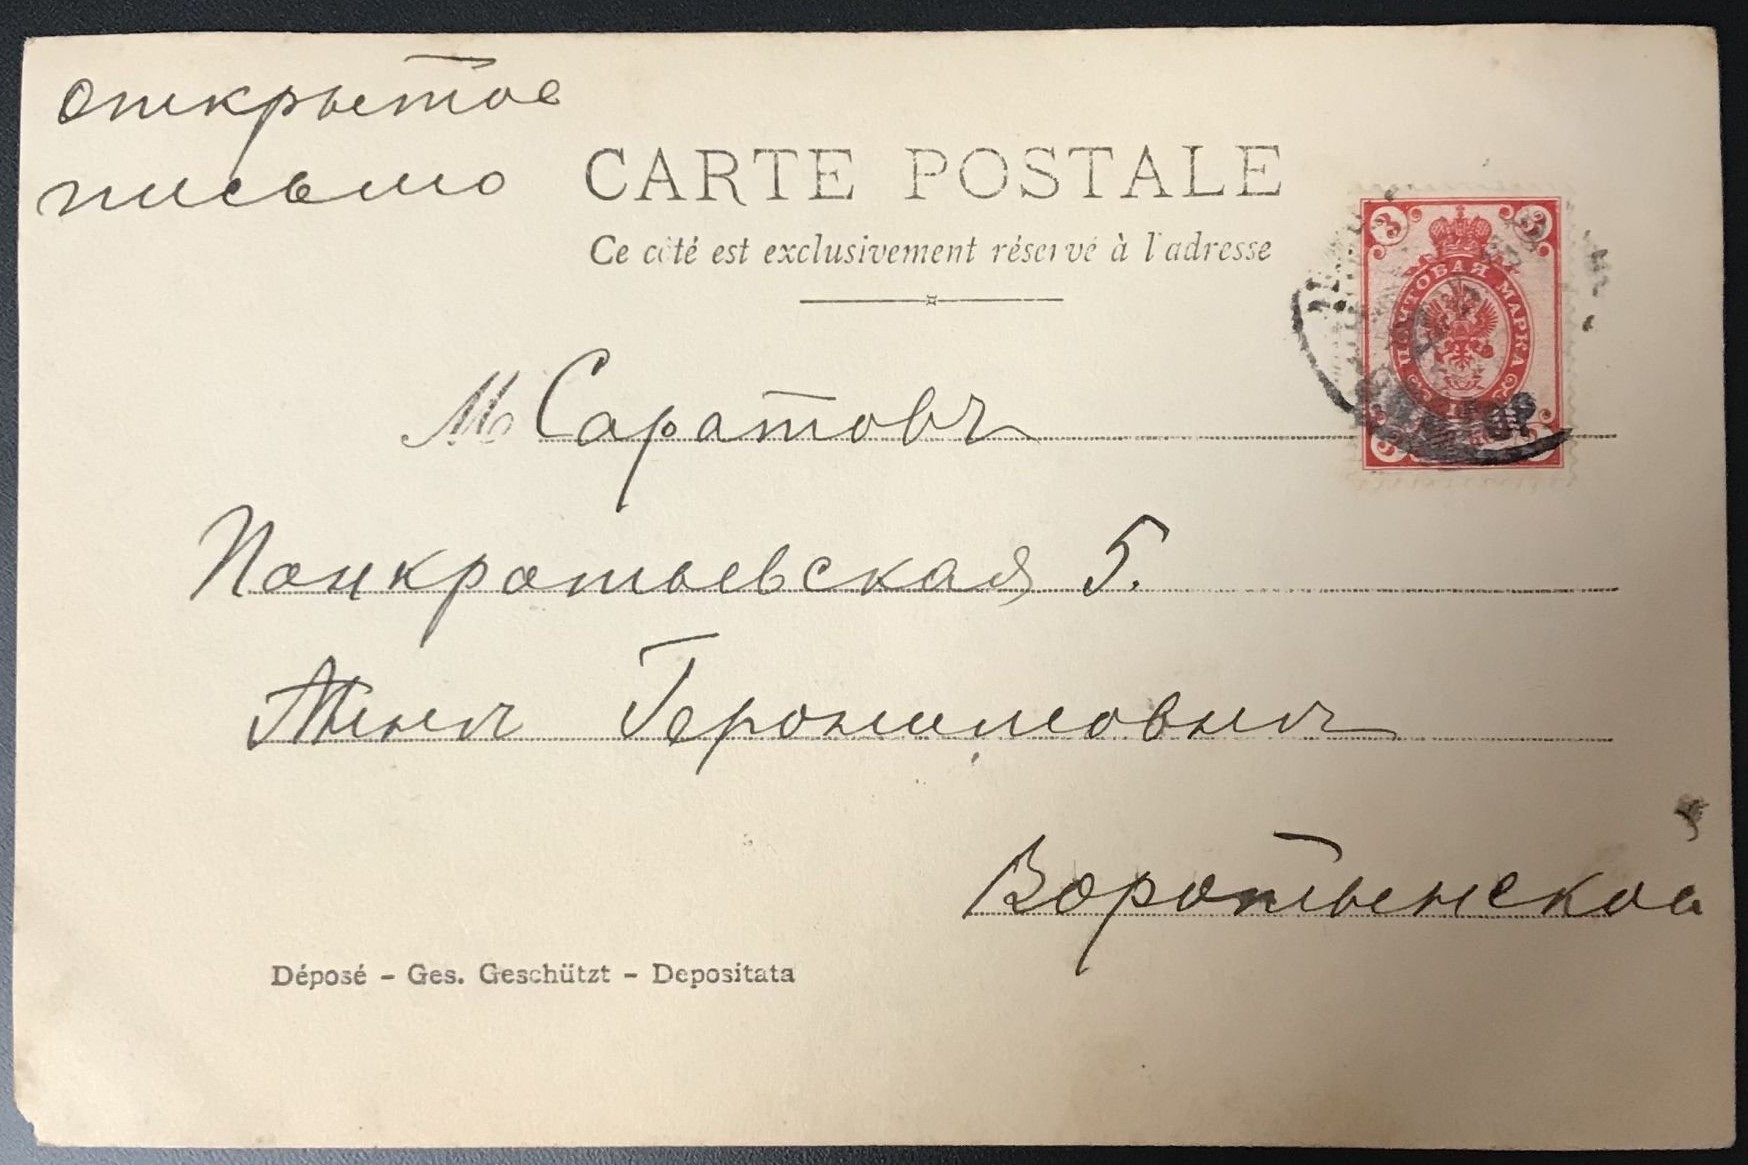 открытое
письмо
CARTE POSTALE
Ce côté est exclusivement réservé à l'adresse
3 3
ПОЧТОВАЯ МАРКА
Саратовъ
Панкратьевская 5.
Геронимовнѣ
Воротынской
Déposé – Ges. Geschützt – Depositata